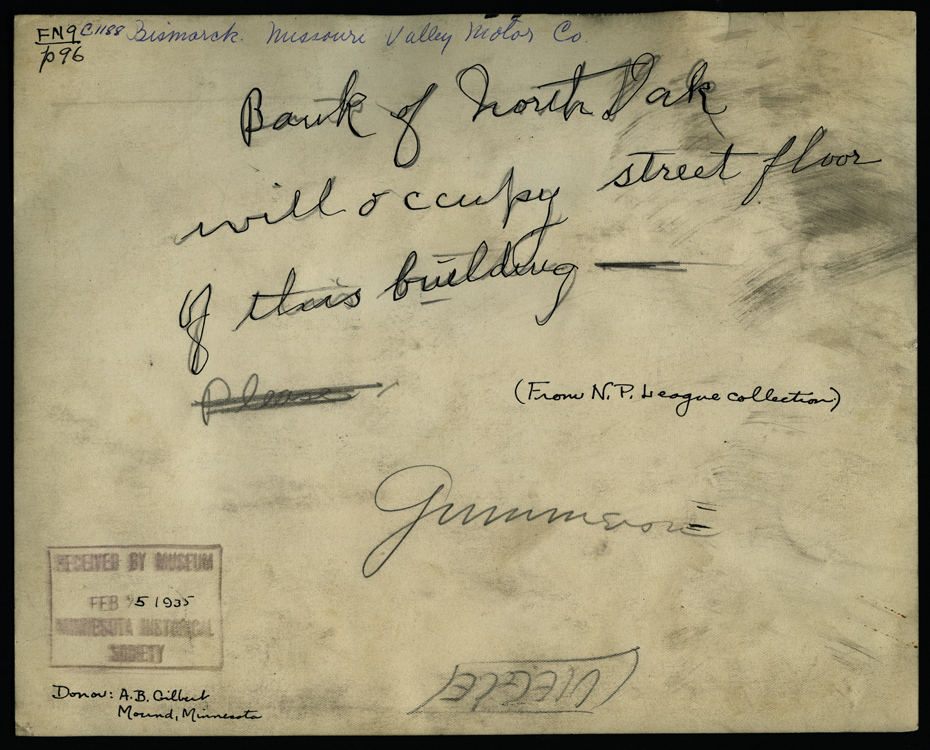 FN9 C1188 Bismarck. Missouri Valley Motor Co.
p96
Bank of North Dak
will occupy street floor
of this building —
Please
(From N.P. League collection)
RECEIVED BY MUSEUM
FEB 25 1935
MINNESOTA HISTORICAL
SOCIETY
Donor: A.B. Gilbert
Mound, Minnesota